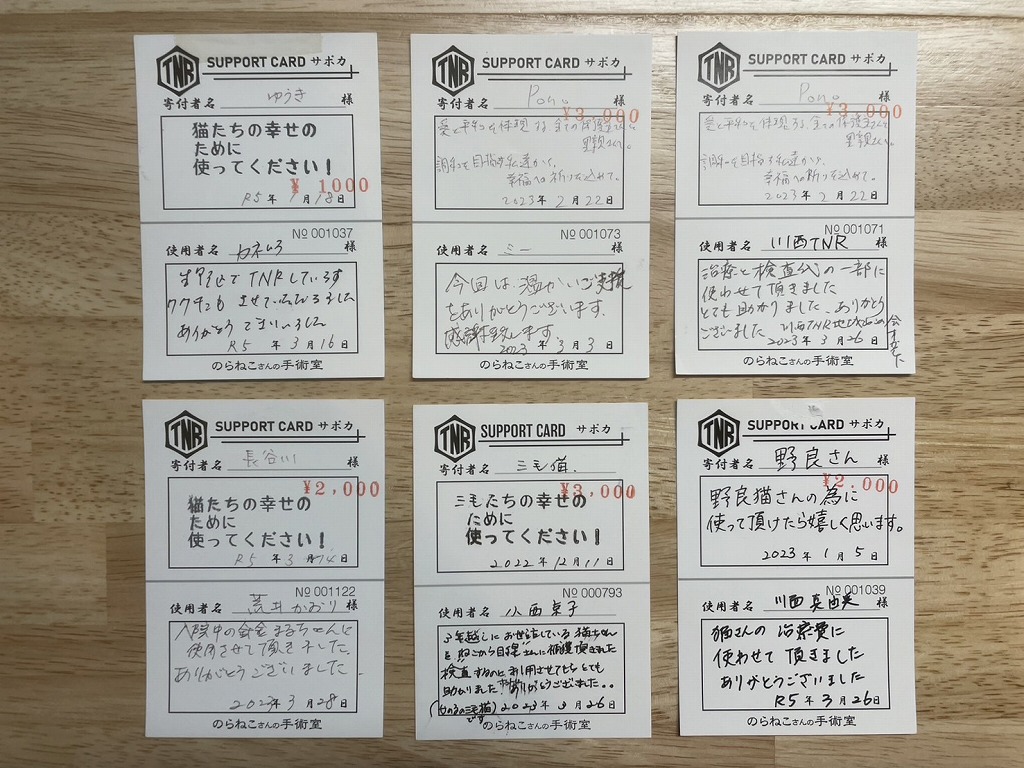 TNR SUPPORT CARD サポカ
寄付者名 ゆうき 様
猫たちの幸せの
ために
使ってください!
¥ 1000
R5 年 1 月 18 日
No 001037
使用者名 様
TNRしています
ワクチンも
ありがとうございました
R5 年 3 月 16 日
のらねこさんの手術室
TNR SUPPORT CARD サポカ
寄付者名 Pono 様
¥3,000
愛と平和を体現する、全ての保護
調和を目指す私達から、
幸福への祈りを込めて。
2023 年 2 月 22 日
No 001073
使用者名 ミー 様
今回は、温かいご支援
をありがとうございます。
感謝致します。
2023 年 3 月 3 日
のらねこさんの手術室
TNR SUPPORT CARD サポカ
寄付者名 Pono 様
¥3,000
愛と平和を体現する、全ての保護
調和を目指す私達から、
幸福への祈りを込めて。
2023 年 2 月 22 日
No 001071
使用者名 川西TNR 様
治療と検査代の一部に
使わせて頂きました
とても助かりました、ありがとう
ございました 川西TNR
2023 年 3 月 26 日
のらねこさんの手術室
TNR SUPPORT CARD サポカ
寄付者名 長谷川 様
¥2,000
猫たちの幸せの
ために
使ってください!
R5 年 3 月 14 日
No 001122
使用者名 荒井かおり 様
入院中の まるちゃんに
使用させて頂きました。
ありがとうございました。
2023 年 3 月 28 日
のらねこさんの手術室
TNR SUPPORT CARD サポカ
寄付者名 三毛猫. 様
¥3,000
三毛たちの幸せの
ために
使ってください!
2022 年 12 月 11 日
No 000793
使用者名 小西京子 様
年越しにお世話している猫ちゃん
検査するのに利用させてもらとても
助かりました ありがとうございました..
2023 年 3 月 26 日
のらねこさんの手術室
TNR SUPPORT CARD サポカ
寄付者名 野良さん 様
¥2,000
野良猫さんの為に
使って頂けたら嬉しく思います。
2023 年 1 月 5 日
No 001039
使用者名 川西真由美 様
猫さんの 治療費に
使わせて頂きました
ありがとうございました
R5 年 3 月 26 日
のらねこさんの手術室